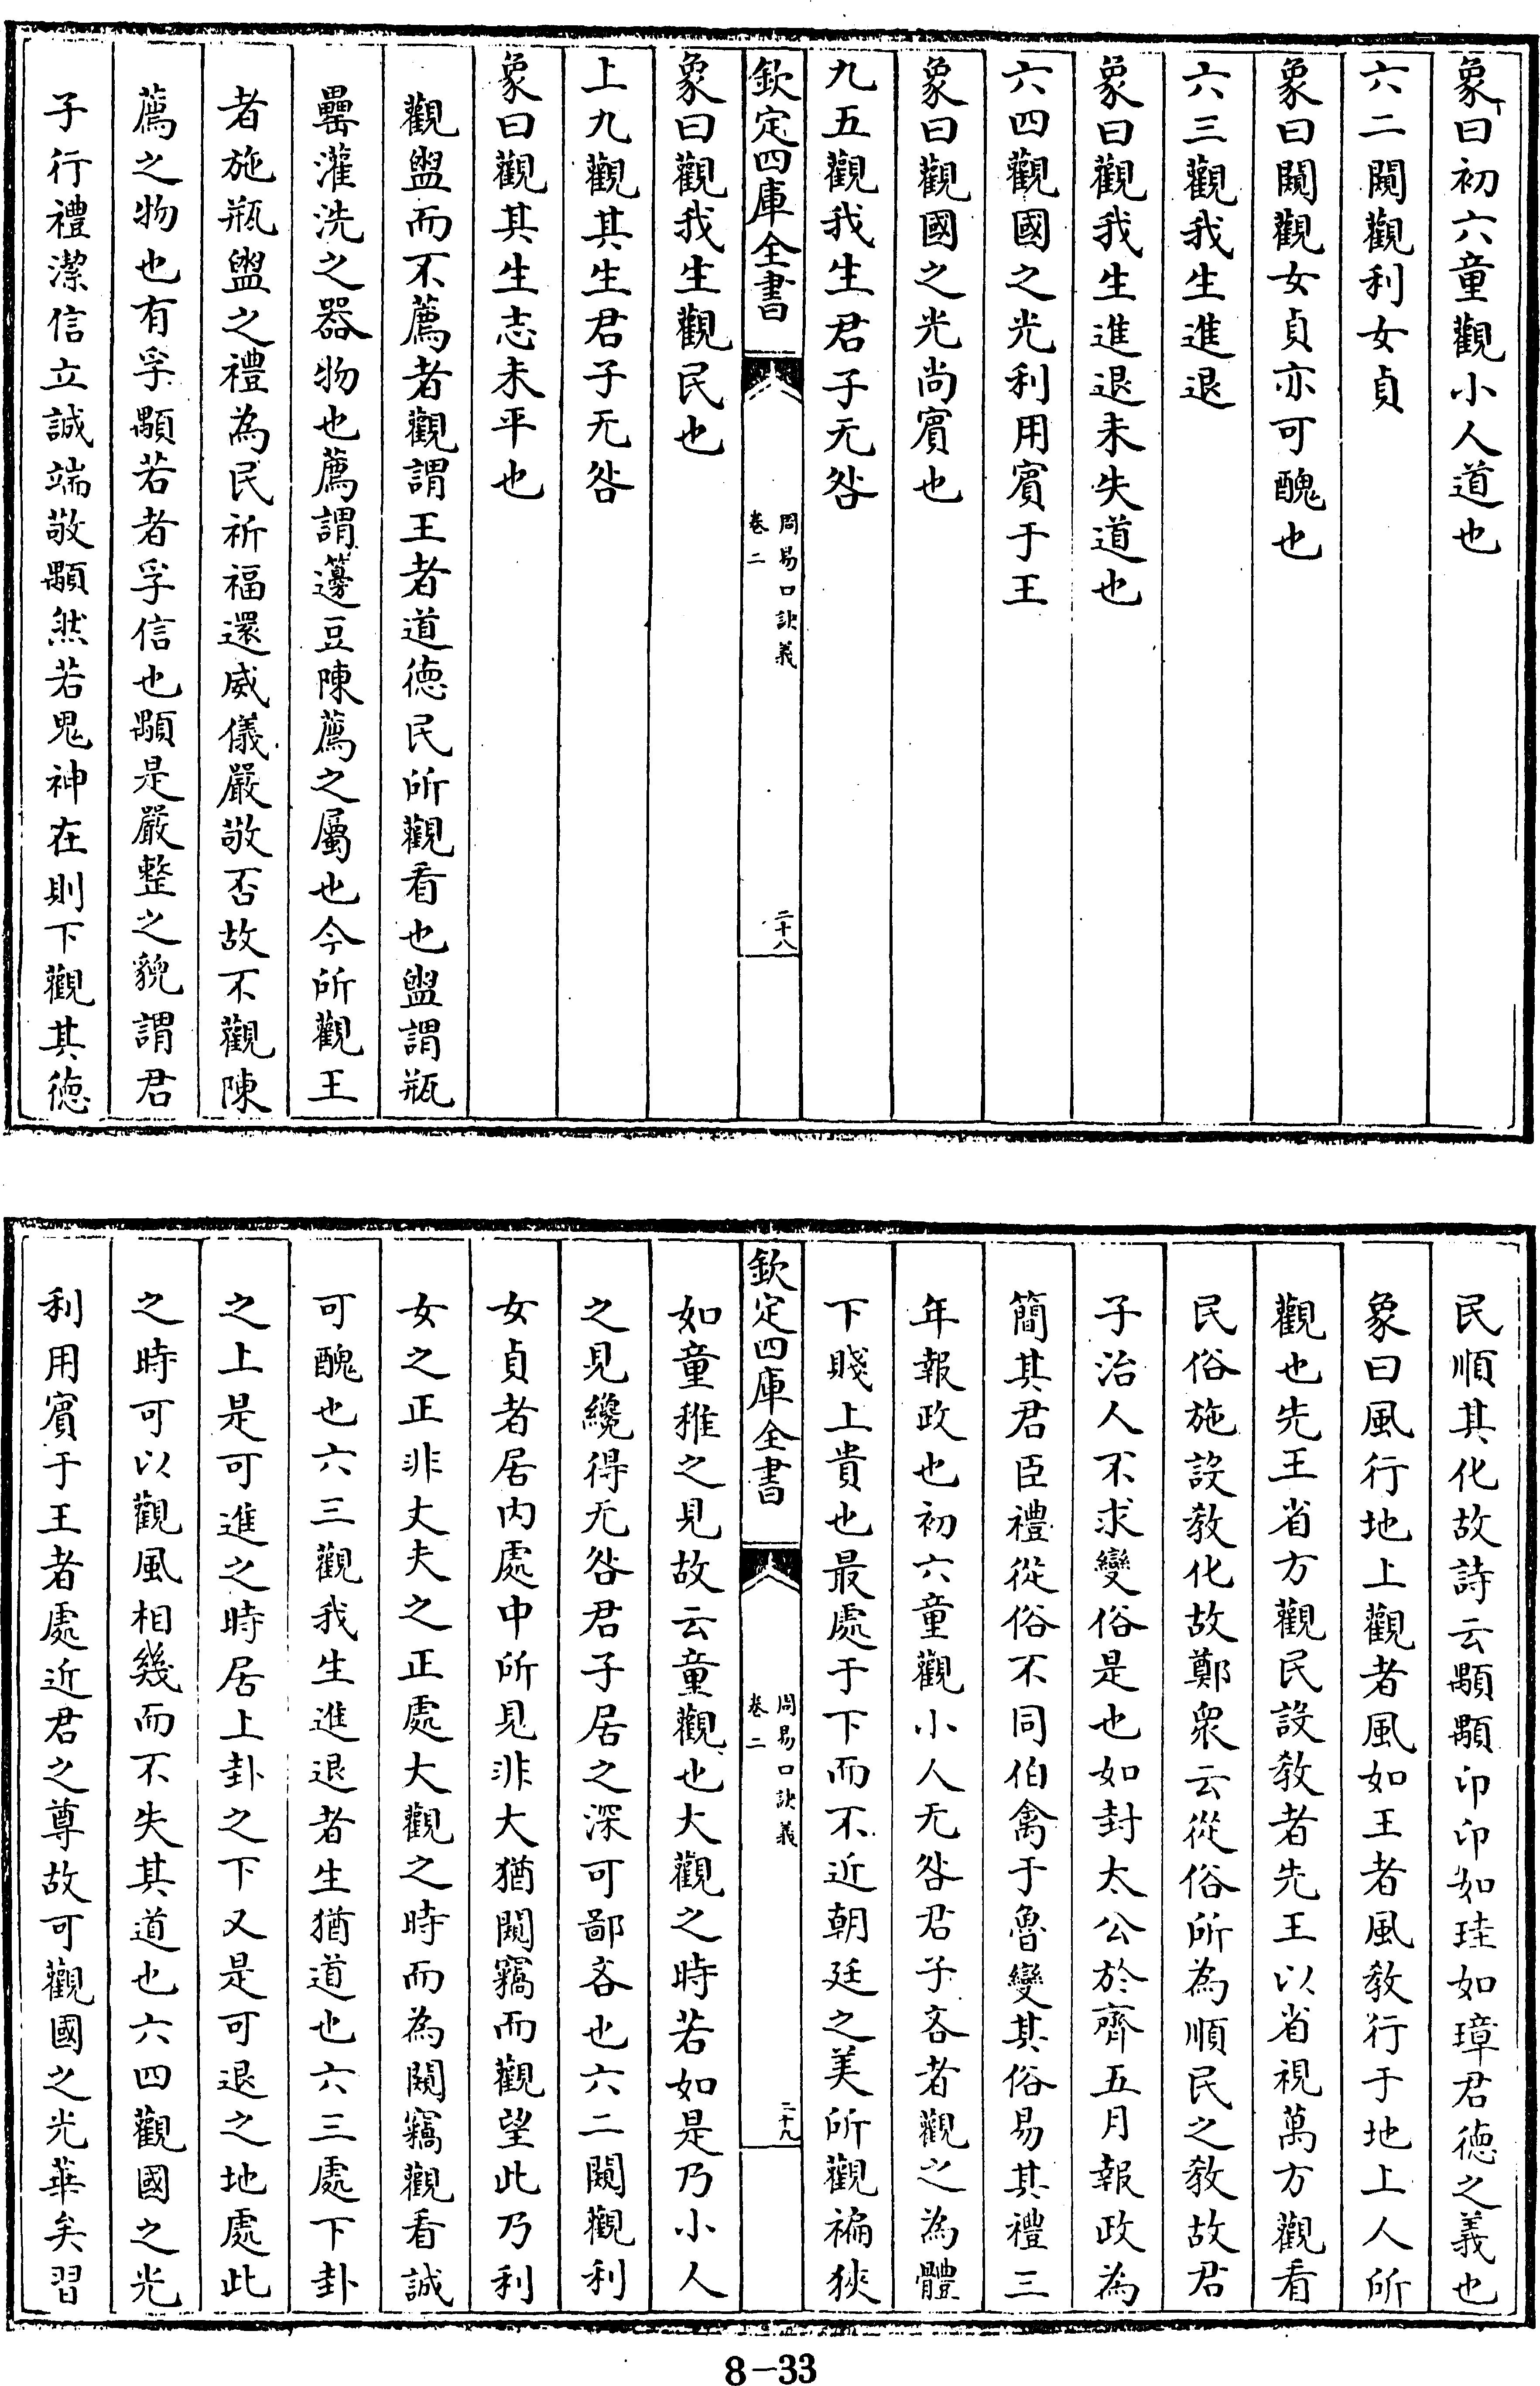 象曰初六童觀小人道也
六二闚觀利女貞
象曰闚觀女貞亦可醜也
六三觀我生進退
象曰觀我生進退未失道也
六四觀國之光利用賓于王
象曰觀國之光尚賓也
九五觀我生君子无咎
欽定四庫全書
周易口訣義
卷二
二十八
象曰觀我生觀民也
上九觀其生君子无咎
象曰觀其生志未平也
觀盥而不薦者觀謂王者道德民所觀看也盥謂瓶
罍灌洗之器物也薦謂籩豆陳薦之屬也今所觀王
者施瓶盥之禮為民祈福還威儀嚴敬否故不觀陳
薦之物也有孚顒若者孚信也顒是嚴整之貌謂君
子行禮潔信立誠端敬顒然若鬼神在則下觀其德
民順其化故詩云顒顒卬卬如珪如璋君德之義也
象曰風行地上觀者風如王者風教行于地上人所
觀也先王省方觀民設教者先王以省視萬方觀看
民俗施設教化故鄭衆云從俗所為順民之教故君
子治人不求變俗是也如封太公於齊五月報政為
簡其君臣禮從俗不同伯禽于魯變其俗易其禮三
年報政也初六童觀小人无咎君子吝者觀之為體
下賤上貴也最處于下而不近朝廷之美所觀褊狹
欽定四庫全書
周易口訣義
卷二
二十九
如童稚之見故云童觀也大觀之時若如是乃小人
之見纔得无咎君子居之深可鄙吝也六二闚觀利
女貞者居内處中所見非大猶闚竊而觀望此乃利
女之正非丈夫之正處大觀之時而為闚竊觀看誠
可醜也六三觀我生進退者生猶道也六三處下卦
之上是可進之時居上卦之下又是可退之地處此
之時可以觀風相幾而不失其道也六四觀國之光
利用賓于王者處近君之尊故可觀國之光華矣習
8-33